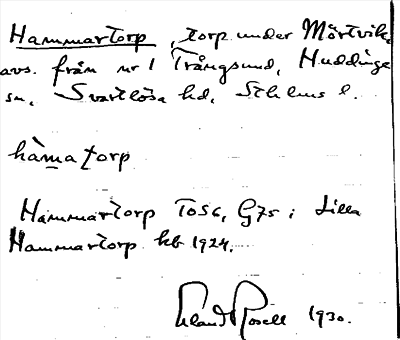 Hammartorp, torp under Mörtvik,
avs. från nr 1 Trångsund, Huddinge
sn, Svartlösa hd, Sthlms l.
hàmatorp
Hammartorp TO56, G75; Lilla
Hammartorp kb 1924.
Erland Rosell 1930.